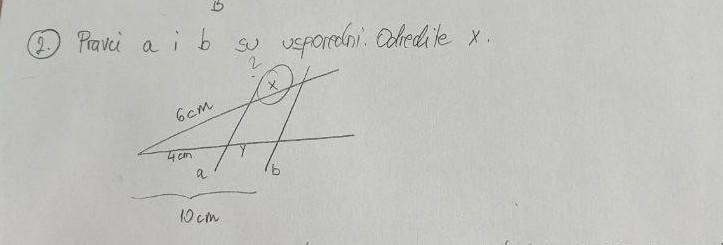 B
2. Pravci a i b su usporedni. Odredite x.
?
x
6cm
4cm
y
a
b
10cm